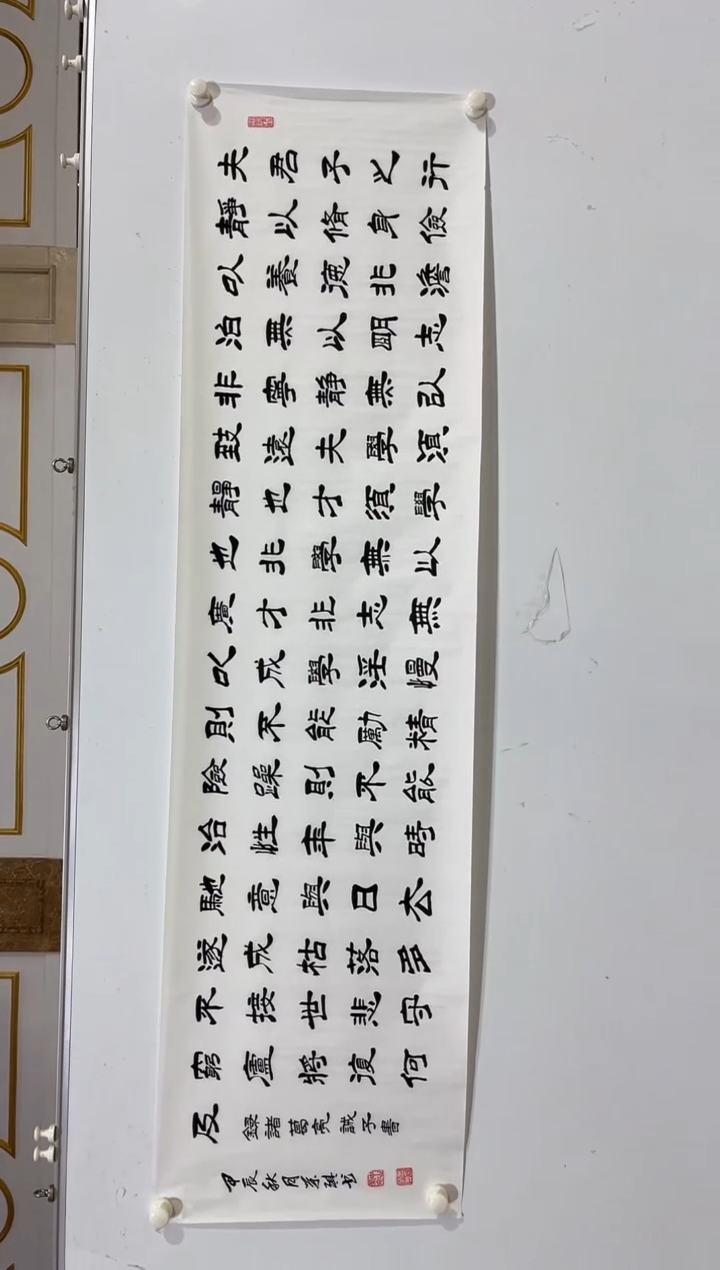 夫君子之行
靜以脩身儉
以養德非澹
泊無以明志
非寧靜無以
致遠夫學須
靜也才須學
也非學無以
廣才非志無
以成學淫慢
則不能勵精
險躁則不能
治性年與時
馳意與日去
遂成枯落多
不接世悲守
窮廬將復何
及
錄諸葛亮誡子書
甲辰秋月